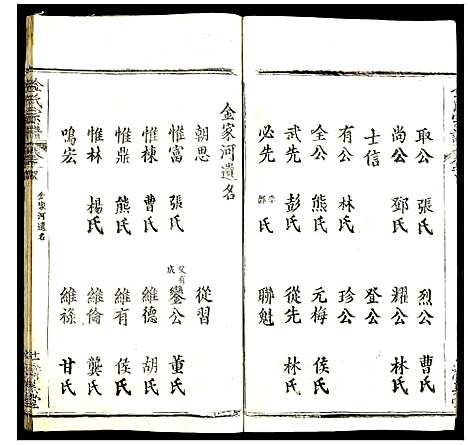 取公 張氏 烈公 曹氏
尚公 鄧氏 耀公 林氏
士信 登公
有公 林氏 珍公
全公 熊氏 元梅 侯氏
武先 彭氏 從先 林氏
必先 氏 聯魁
金家河遺名
朝思 從習
惟富 張氏 父有成 鑾公 董氏
惟棟 曹氏 維德 胡氏
惟鼎 熊氏 維有 侯氏
惟林 楊氏 維倫 龔氏
鳴宏 維祿 甘氏
金家河遺名